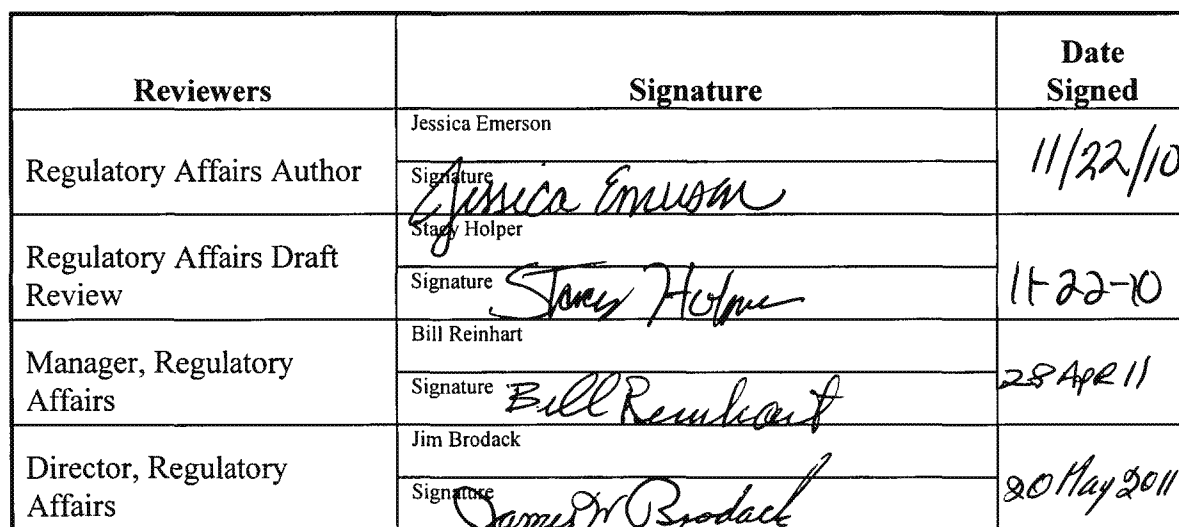 Reviewers Signature Date Signed
Regulatory Affairs Author
Jessica Emerson
Signature Jessica Emerson
11/22/10
Regulatory Affairs Draft
Review
Stacy Holper
Signature Stacy Holper
11-22-10
Manager, Regulatory
Affairs
Bill Reinhart
Signature Bill Reinhart
28 Apr 11
Director, Regulatory
Affairs
Jim Brodack
Signature James W Brodack
20 May 2011